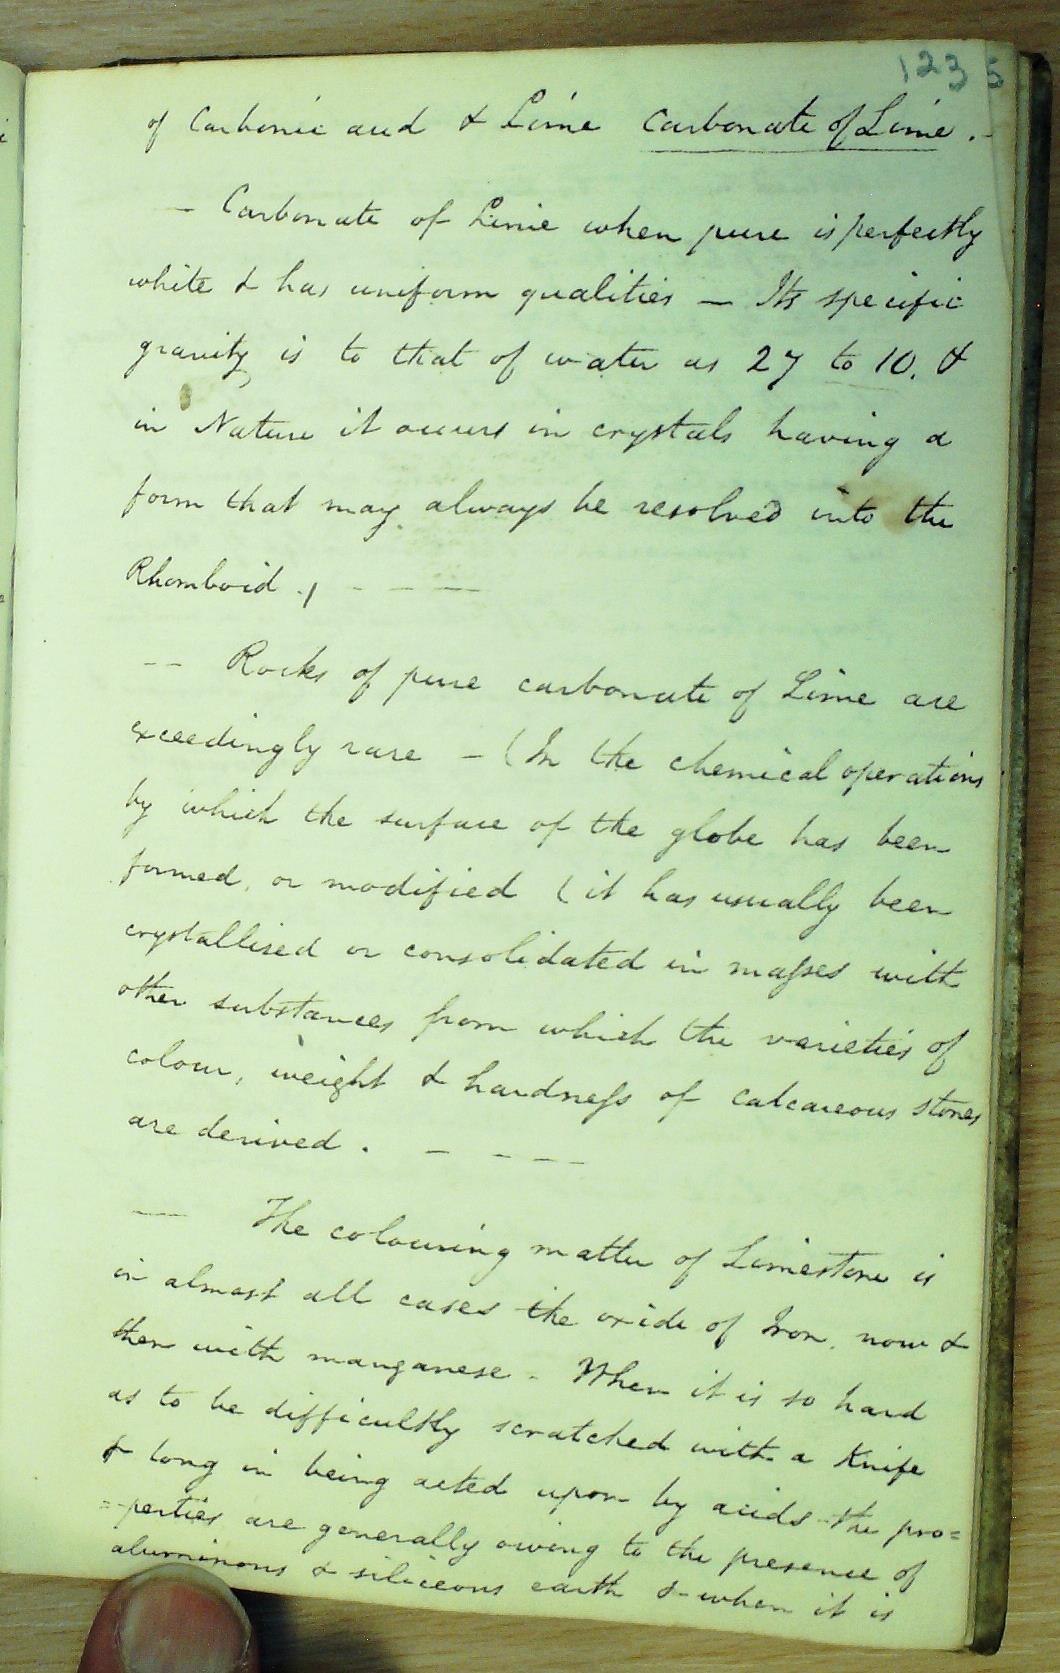 123 5
of Carbonic acid & Lime Carbonate of Lime. -
— Carbonate of Lime when pure is perfectly
white & has uniform qualities — Its specific
gravity is to that of water as 27 to 10. &
in Nature it occurs in crystals having a
form that may always be resolved into the
Rhomboid. / - - —
-- Rocks of pure carbonate of Lime are
exceedingly rare - (In the chemical operations
by which the surface of the globe has been
formed, or modified ( it has usually been
crystallised or consolidated in maſses with
other substances from which the varieties of
colour, weight & hardneſs of calcareous stones
are derived. - - - - -
— The colouring matter of Limestone is
in almost all cases the oxide of Iron, now &
then with manganese. When it is so hard
as to be difficultly scratched with a Knife
& long in being acted upon by acids the pro=
=perties are generally owing to the presence of
aluminous & siliceous earth & when it is